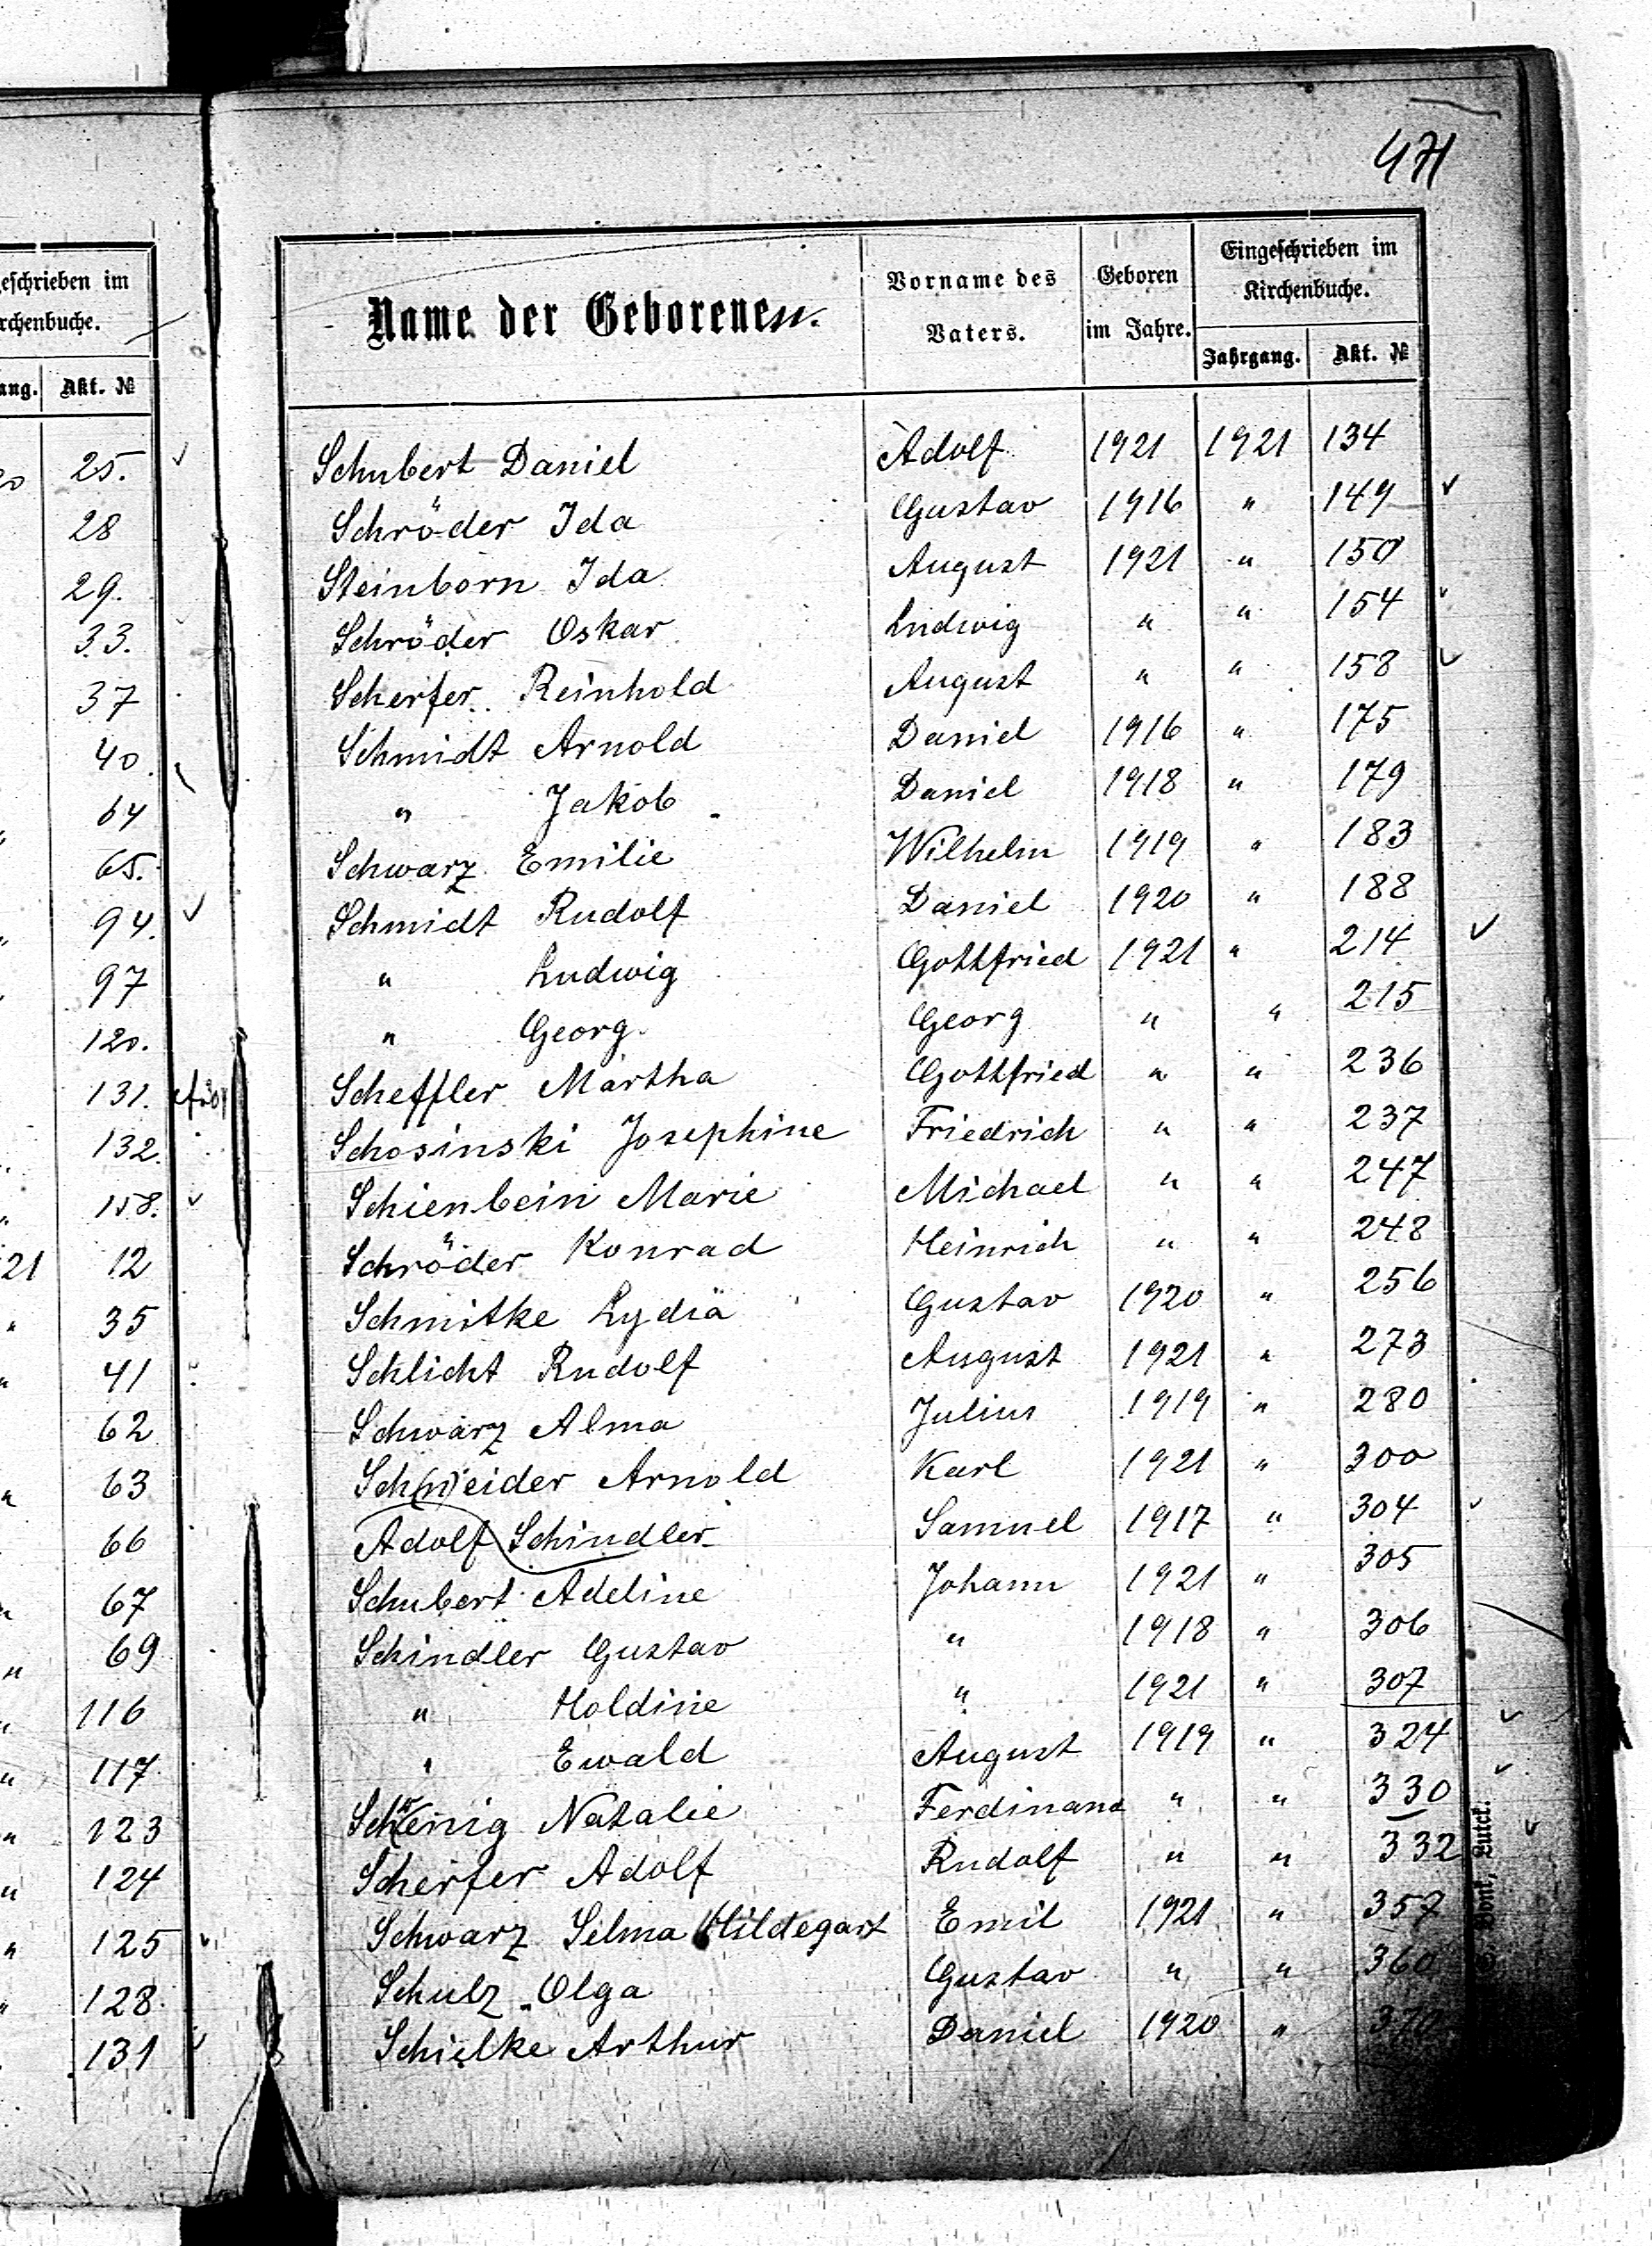 471
eschrieben im
rchenbuche.
ang. Akt. №
25.
28
29.
33.
37
40.
64
65.
94.
97
120.
131.
132.
158.
21 12
" 35
" 41
62
" 63
66
67
" 69
116
" 117
" 123
" 124
" 125
" 128
131
Name der Geborenen. Vorname des Vaters. Geboren im Jahre. Eingeschrieben im Kirchenbuche.
Jahrgang. Akt. №
Schubert Daniel Adolf 1921 1921 134
Schröder Ida Gustav 1916 " 149
Steinborn Ida August 1921 " 150
Schröder Oskar Ludwig " " 154
Scherfer Reinhold August " " 158
Schmidt Arnold Daniel 1916 " 175
" Jakob Daniel 1918 " 179
Schwarz Emilie Wilhelm 1919 " 183
Schmidt Rudolf Daniel 1920 " 188
" Ludwig Gottfried 1921 " 214
" Georg Georg " " 215
Scheffler Martha Gottfried " " 236
Schosinski Josephine Friedrich " " 237
Schienbein Marie Michael " " 247
Schröder Konrad Heinrich " " 248
Schmitke Lydia Gustav 1920 " 256
Schlicht Rudolf August 1921 " 273
Schwarz Alma Julius 1919 " 280
Schneider Arnold Karl 1921 " 300
Adolf Schindler Samuel 1917 " 304
Schubert Adeline Johann 1921 " 305
Schindler Gustav " 1918 " 306
" Holdine " 1921 " 307
" Ewald August 1919 " 324
Natalie Ferdinand " " 330
Scherfer Adolf Rudolf " " 332
Schwarz Selma Hildegart Emil 1921 " 357
Schulz Olga Gustav " " 360
Schielke Arthur Daniel 1920 " 370